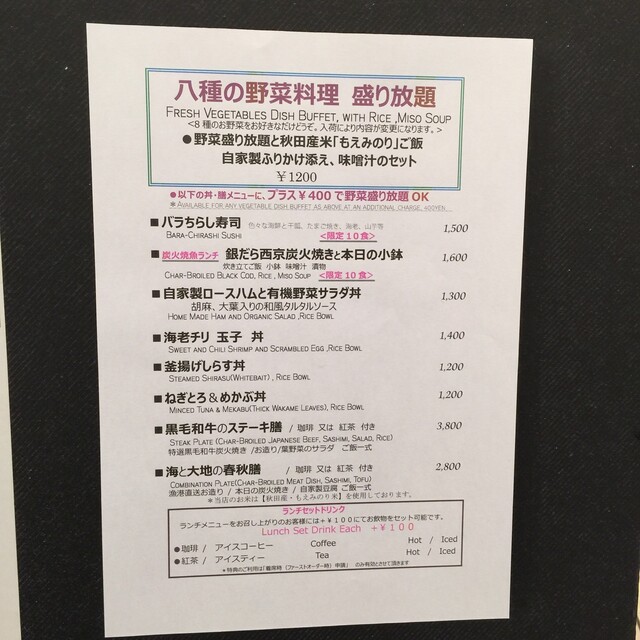 八種の野菜料理 盛り放題
FRESH VEGETABLES DISH BUFFET, WITH RICE ,MISO SOUP
<8種のお野菜をお好きなだけどうぞ。入荷により内容が変更になります。>
●野菜盛り放題と秋田産米「もえみのり」ご飯
自家製ふりかけ添え、味噌汁のセット
￥1200
●以下の丼・膳メニューに、プラス￥400で野菜盛り放題OK
*AVAILABLE FOR ANY VEGETABLE DISH BUFFET AS ABOVE AT AN ADDITIONAL CHARGE, 400YEN
■バラちらし寿司 色々な海鮮と干瓢、たまご焼き、海老、山芋等 1,500
BARA-CHIRASHI SUSHI <限定10食>
■炭火焼魚ランチ 銀だら西京炭火焼きと本日の小鉢 1,600
炊き立てご飯 小鉢 味噌汁 漬物
CHAR-BROILED BLACK COD, RICE, MISO SOUP <限定10食>
■自家製ロースハムと有機野菜サラダ丼 1,300
胡麻、大葉入りの和風タルタルソース
HOME MADE HAM AND ORGANIC SALAD ,RICE BOWL
■海老チリ 玉子 丼 1,400
SWEET AND CHILI SHRIMP AND SCRAMBLED EGG ,RICE BOWL
■釜揚げしらす丼 1,200
STEAMED SHIRASU(WHITEBAIT) , RICE BOWL
■ねぎとろ＆めかぶ丼 1,200
MINCED TUNA & MEKABU(THICK WAKAME LEAVES), RICE BOWL
■黒毛和牛のステーキ膳 / 珈琲 又は 紅茶 付き 3,800
STEAK PLATE (CHAR-BROILED JAPANESE BEEF, SASHIMI, SALAD, RICE)
特選黒毛和牛炭火焼き /お造り/葉野菜のサラダ ご飯一式
■海と大地の春秋膳 / 珈琲 又は 紅茶 付き 2,800
COMBINATION PLATE(CHAR-BROILED MEAT DISH, SASHIMI, TOFU)
漁港直送お造り / 本日の炭火焼き / 自家製豆腐 ご飯一式
*当店のお米は【秋田産・もえみのり米】を使用しております。
ランチセットドリンク
ランチメニューをお召し上がりのお客様には＋￥100にてお飲物をセット可能です。
Lunch Set Drink Each ＋￥100
●珈琲 / アイスコーヒー Coffee Hot / Iced
●紅茶 / アイスティー Tea Hot / Iced
*特典のご利用は「着席時（ファーストオーダー時）申請」 のみ有効とさせて頂きます